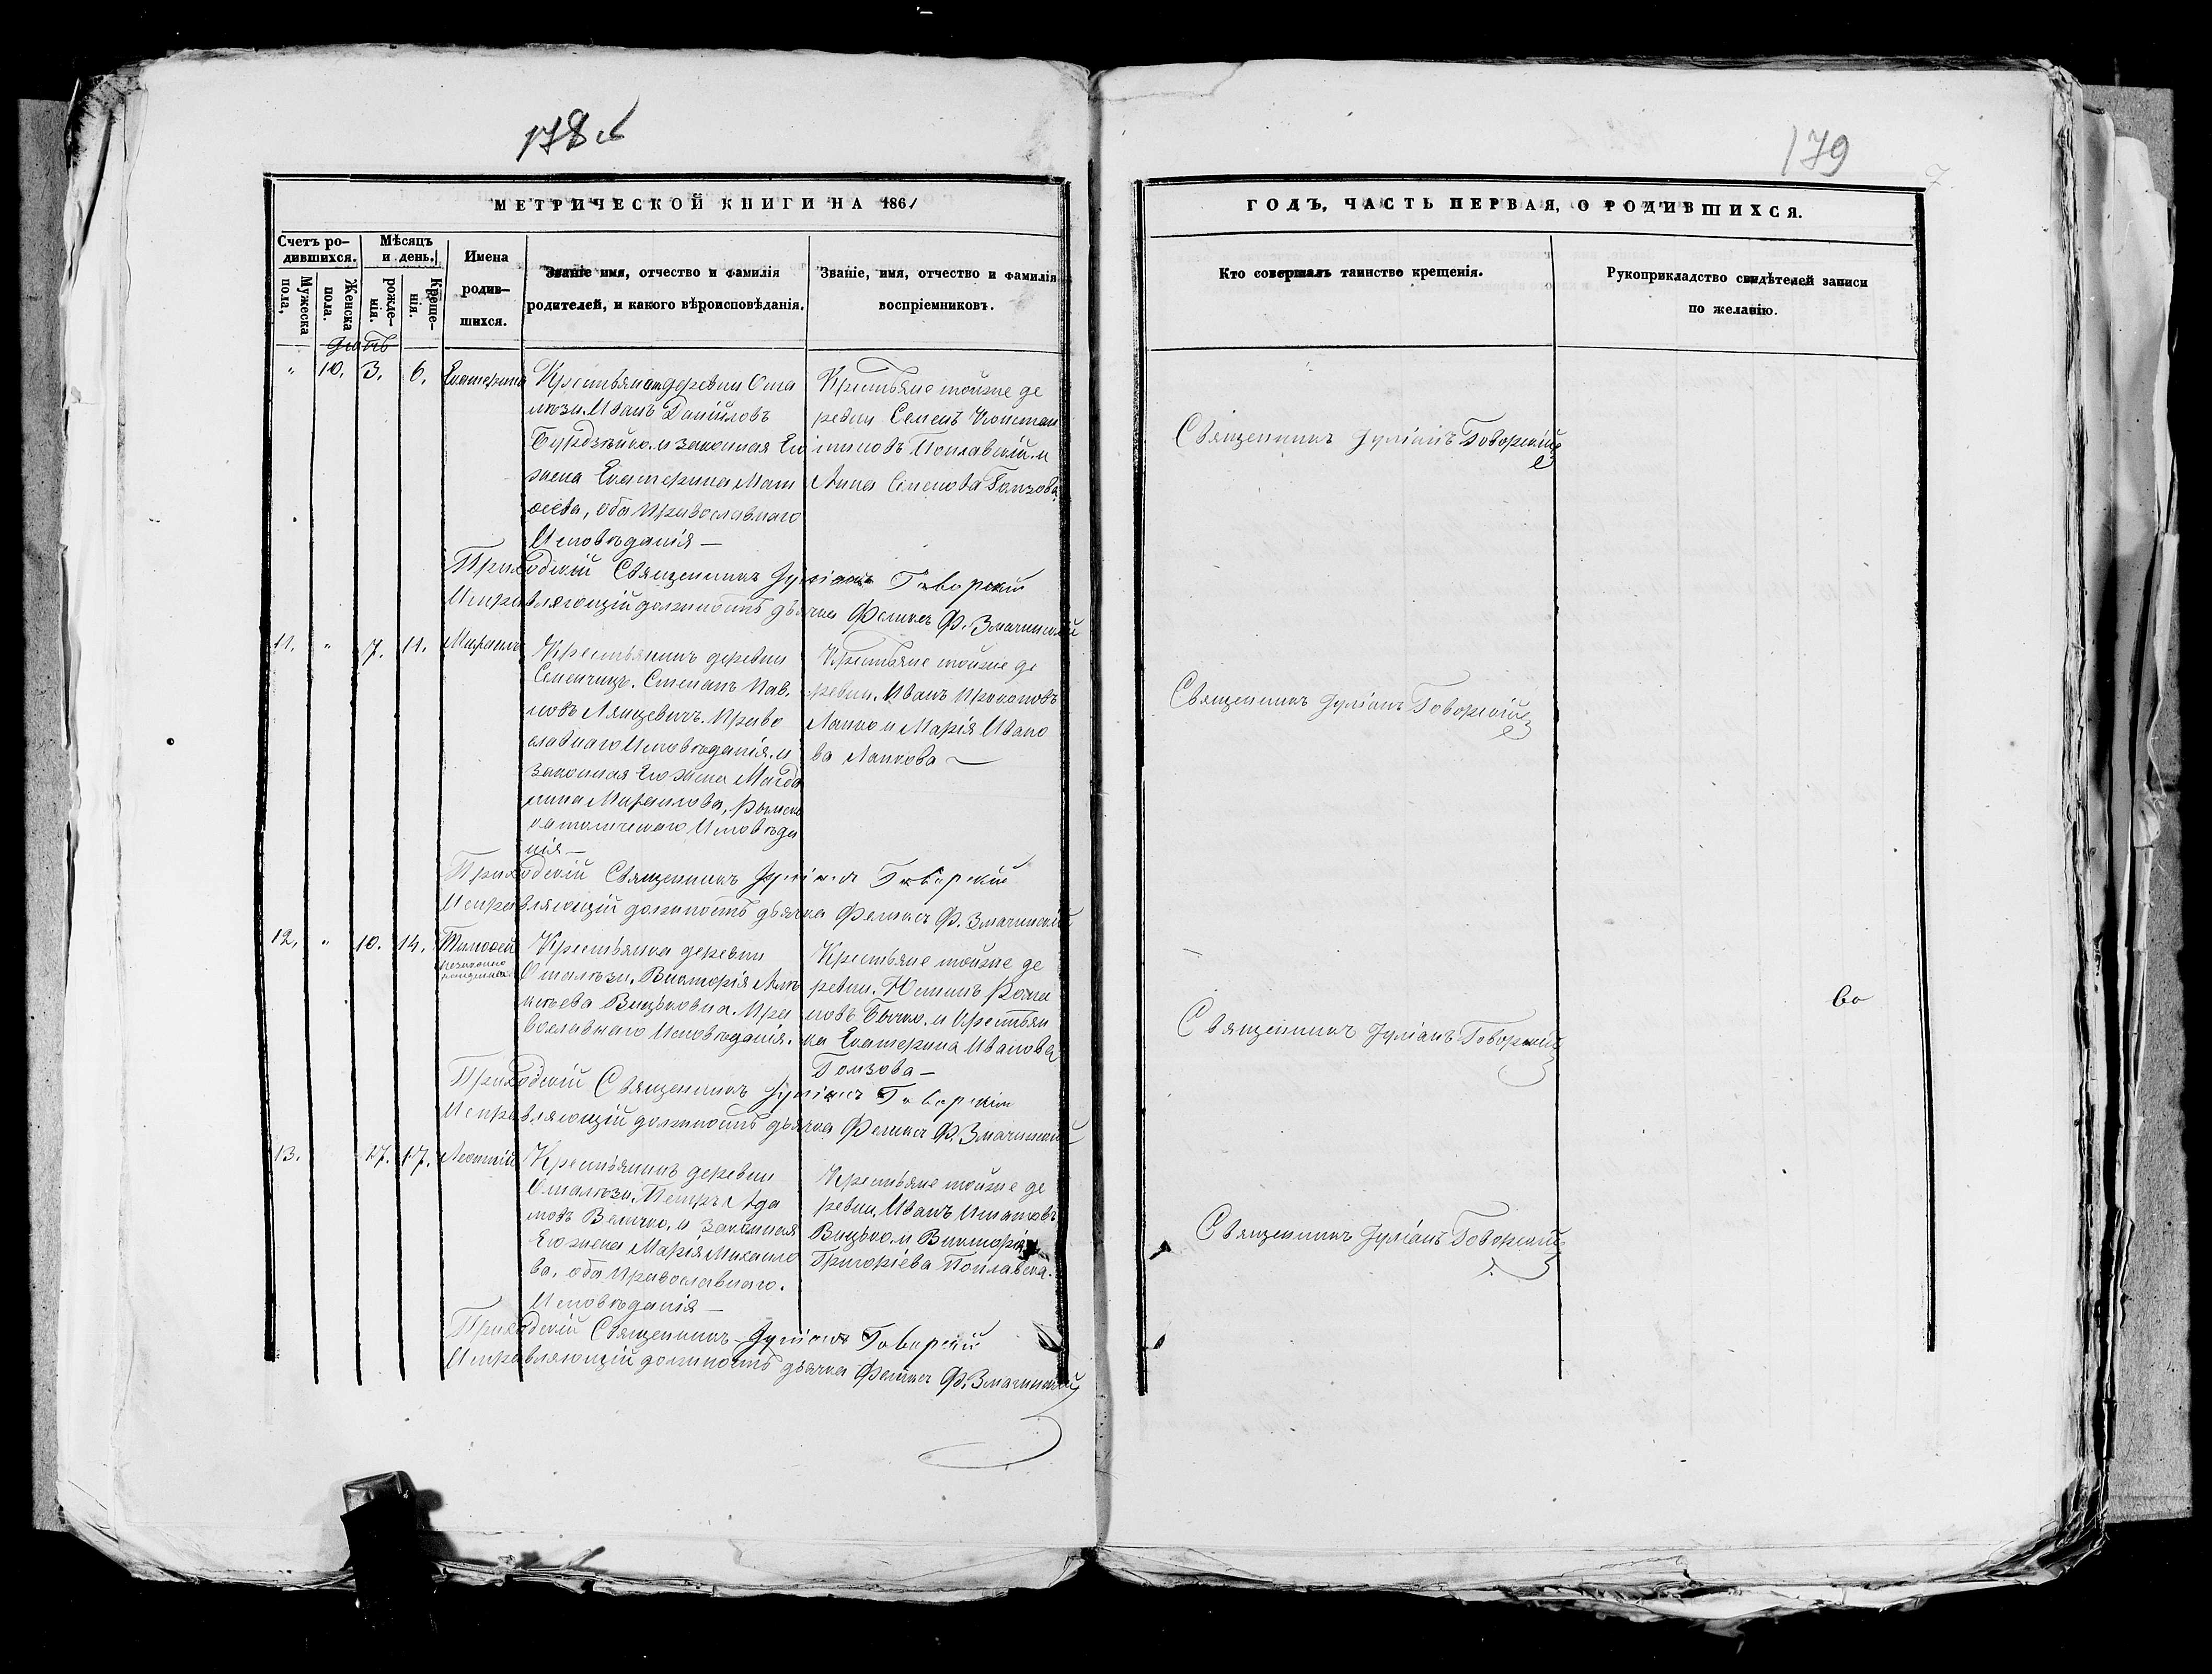 178 об
МЕТРИЧЕСКОЙ КНИГИ НА 1861
Счетъ ро-
дившихся.
Мужеска
пола,
Женска
пола.
Мѣсяцъ
и день.
рожде-
нія.
Креще-
нія.
Имена
родив-
шихся.
Званіе имя, отчество и фамилія
родителей, и какого вѣроисповѣданія.
Званіе, имя, отчество и фамилія
воспріемниковъ.
" 10. 3. 6. Екатерина
Крестьянинъ деревни Ома
Иванъ Данииловъ
и законная Его
жена Екатерина Мат
ѳеева, оба Православнаго
Исповѣданія —
Крестьяне тойже де
ревни Семенъ Констан
тиновъ Поплавскій и
Анна Семенова
Приходскій Священникъ Іуліанъ Говорскій
Исправляющій должность дьячка Феликсъ Ф. Змачинскій
11. " 7. 11. Михаилъ
Крестьянинъ деревни
Семенчицъ. Степанъ Пав.
ловъ Ляцевичъ. Право
славнаго Исповѣданія. и
законная Его жена Магда
лина Михаилова, Римско
католическаго Исповѣда
нія —
Крестьяне тойже де
ревни. Иванъ Прокоповъ
Лапко и Марія Ивано
ва Лапкова —
Приходскій Священникъ Іуліанъ Говорскій
Исправляющій должность дьячка Феликсъ Ф. Змачинскій
12. " 10. 14. Тимоѳей
незаконно
рожденный
Крестьянка деревни
Викторія
Православнаго Исповѣданія.
Крестьяне тойже де
ревни. Юстинъ Рома
новъ Бычко. и Крестьян
ка Екатерина Иванова
Приходскій Священникъ Іуліанъ Говорскій
Исправляющій должность дьячка Феликсъ Ф. Змачинскій
13. 17. 17. Леонтій
Крестьянинъ деревни
Петръ Ада
мовъ Величко, и законная
Его жена Марія Михаило
ва, оба Православнаго.
Исповѣданія —
Крестьяне тойже де
ревни, Иванъ Игнатовъ
Вицько. и Викторія
Григоріева Поплавска.
Приходскій Священникъ Іуліанъ Говорскій
Исправляющій должность дьячка Феликсъ Ф. Змачинскій
179
ГОДЪ, ЧАСТЬ ПЕРВАЯ, О РОДИВШИХСЯ.
Кто совершалъ таинство крещенія.
Рукоприкладство свидѣтелей записи
по желанію.
Священникъ Іуліанъ Говорскій
Священникъ Іуліанъ Говорскій
Священникъ Іуліанъ Говорскій
Священникъ Іуліанъ Говорскій